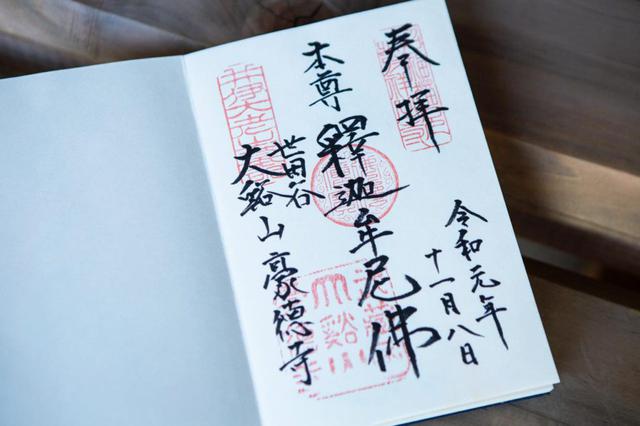 奉拝
令和元年
十一月八日
本尊
釋迦牟尼佛
世田谷
大谿山豪徳寺